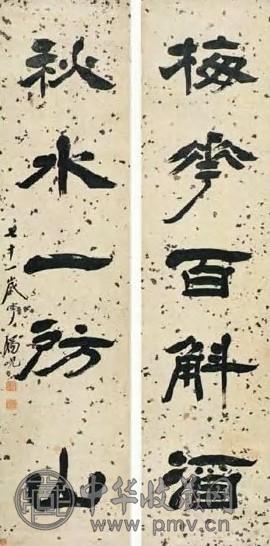 梅華百斛酒
秋水一房山
七十一歲叟楊峴
中华收藏网
www.pmv.cn